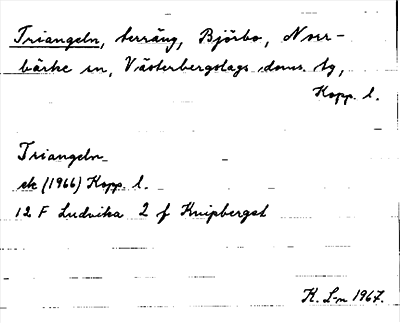 Triangeln, terräng, Björbo, Norr-
bärke sn, Västerbergslags doms. tg,
Kopp. l.
Triangeln
ek (1966) Kopp. l.
12 F Ludvika 2 f Knipberget
K. L-n 1967.